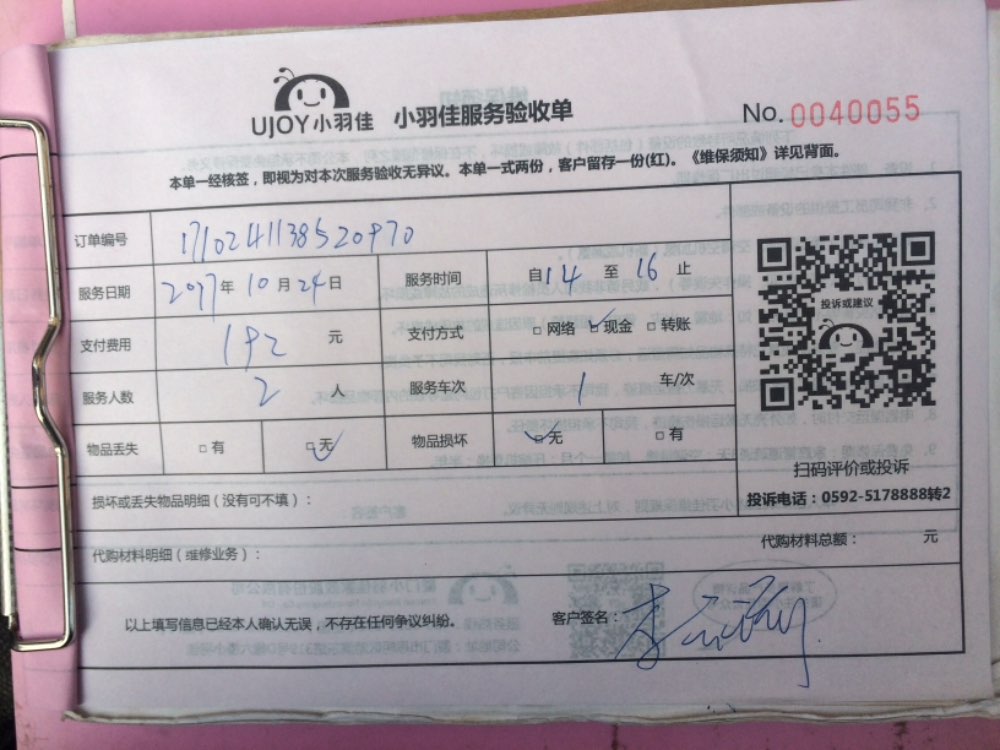 UJOY小羽佳 小羽佳服务验收单 No.0040055
本单一经核签，即视为对本次服务验收无异议。本单一式两份，客户留存一份(红)。《维保须知》详见背面。
订单编号 1710241138520970
服务日期 2017年10月24日 服务时间 自14至16止
支付费用 192 元 支付方式 □网络 ☑现金 □转账
投诉或建议
服务人数 2 人 服务车次 1 车/次
物品丢失 □有 ☑无 物品损坏 ☑无 □有
扫码评价或投诉
投诉电话：0592-5178888转2
损坏或丢失物品明细（没有可不填）：
代购材料明细（维修业务）： 代购材料总额： 元
以上填写信息已经本人确认无误，不存在任何争议纠纷。 客户签名：